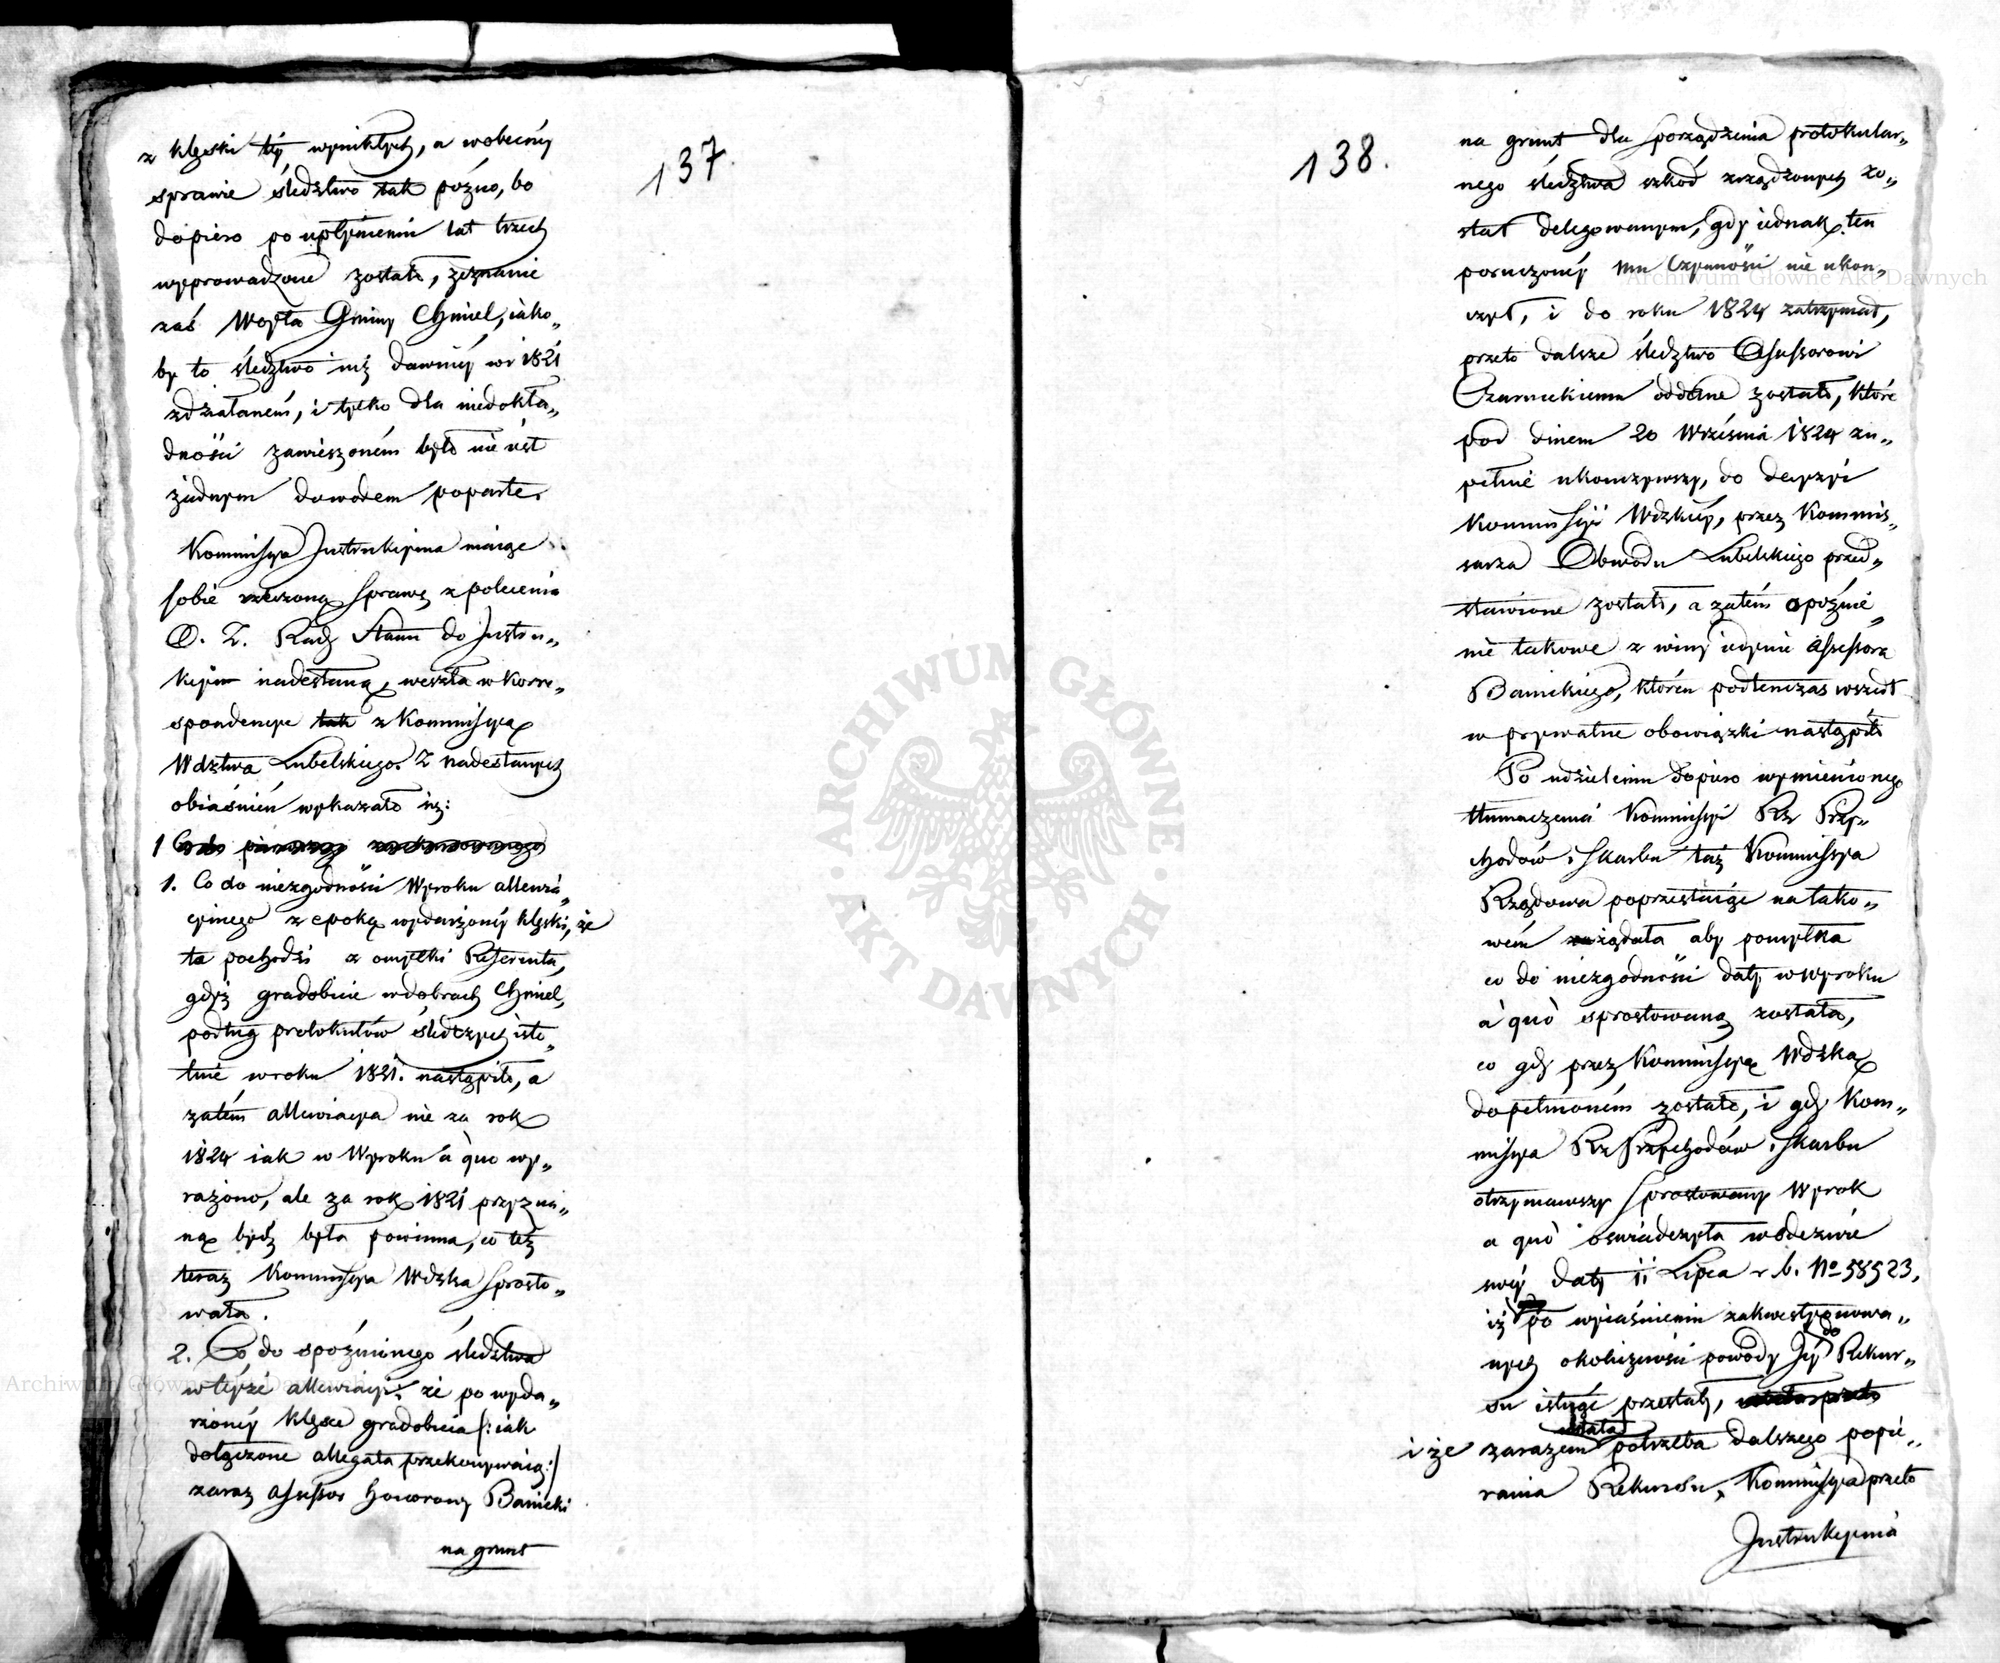 137.
z klęski téy wynikłych, a wobecnéy
sprawie śledztwo tak późno, bo
dopiero po upłynieniu lat trzech
wyprowadzone zostało, zeznanie
zaś Woyta Gminy Chmiel, iako„
by to śledztwo iuż dawniéy w r 1821
zdziałaném, i tylko dla niedokła„
dności zawieszoném było nie iest
żadnym dowodem poparte.
Kommissya Instrukcyina maiąc
sobie rzeczoną sprawę z polecenia
O. Z. Rady Stanu do Instru„
kcyi nadesłaną, weszła w korre„
spondencye z Kommissyą
Wdztwa Lubelskiego. Z nadesłanych
obiaśnień wykazało iż:
1. Co do niezgodności Wyroku allewia„
cyinego z epoką wydarzonéy klęski, że
ta pochodzi z omyłki Referenta,
gdyż gradobicie w dobrach Chmiel,
podług protokułów śledczych isto„
tnie w roku 1821. nastąpiło, a
zatém allewiacya nie za rok
1824 iak w Wyroku à quo wy„
rażono, ale za rok 1821 przyzna„
ną bydź była powinna, co też
teraz Kommissya Wdzka sprosto„
wała.
2. Co do spóźnionego śledztwa
w teyże allewiacyi: że po wyda„
rzonéy klęsce gradobicia /: iak
dołączone allegata przekonywaią :/
zaraz Assessor honorowy Baniecki
na grunt
138.
na grunt dla sporządzenia protokular„
nego śledztwa szkód zrządzonych zo„
stał delegowanym, gdy iednak ten
poruczonéy mu czynności nie ukoń„
czył, i do roku 1824 zatrzymał,
przeto dalsze śledztwo Assessorowi
Czarneckiemu oddane zostało, które
pod dniem 20 Września 1824 zu„
pełnie ukończywszy, do decyzyi
Kommissyi Wdzkiéy, przez Kommis„
sarza Obwodu Lubelskiego przed„
stawione zostało, a zatém opóźnie„
nie takowe z winy iedynie Assessora
Banieckiego, któren podtenczas wszedł
w prywatne obowiązki nastąpiło
Po udzieleniu dopiero wymienionego
tłumaczenia Kommissyi Rz Przy„
chodów i Skarbu taż Kommissya
Rządowa poprzestaiąc na tako„
wém żądała aby pomyłka
co do niezgodności daty w wyroku
à quò sprostowaną została,
co gdy przez Kommissyą Wdzką
dopełnioném zostało, i gdy Kom„
missya Rz Przychodów i Skarbu
otrzymawszy sprostowany Wyrok
a quò oświadczyła w odezwie
swéy daty 11 Lipca r. b. No 58523,
iż po wyiaśnieniu zakwestyonowa„
nych okoliczności powody Jéy do Rekur„
su istnieć przestały,
i że zarazem ustała potrzeba dalszego popie„
rania Rekursu, Kommissya przeto
Instrukcyina